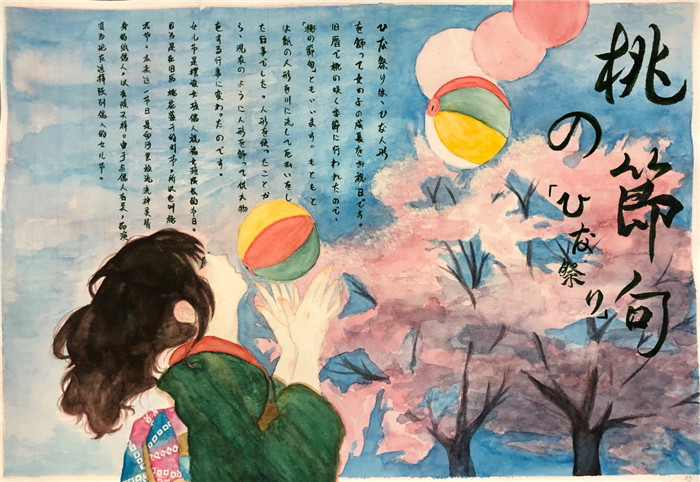 桃の節句
「ひな祭り」
ひな祭りは、ひな人形
を飾って女の子の成長を祝日です。
旧暦で桃の咲く季節に行われたので、
「桃の節句」ともいいます。もともと
は紙の人形を川に流して厄払いをし
た行事でした。人形を使ったことか
ら、現在のように人形を飾って供え物
をする行事に変わったのです。
女儿节是摆设女孩偶人祝福女孩成长的节日。
因为是在旧历桃花盛开的时节，所以也叫桃
花节。本来这一节日是向河里放流神灵替
身的纸偶人，以去除不祥。由于与偶人有关，而演
变为现在这样陈列偶人的女儿节。